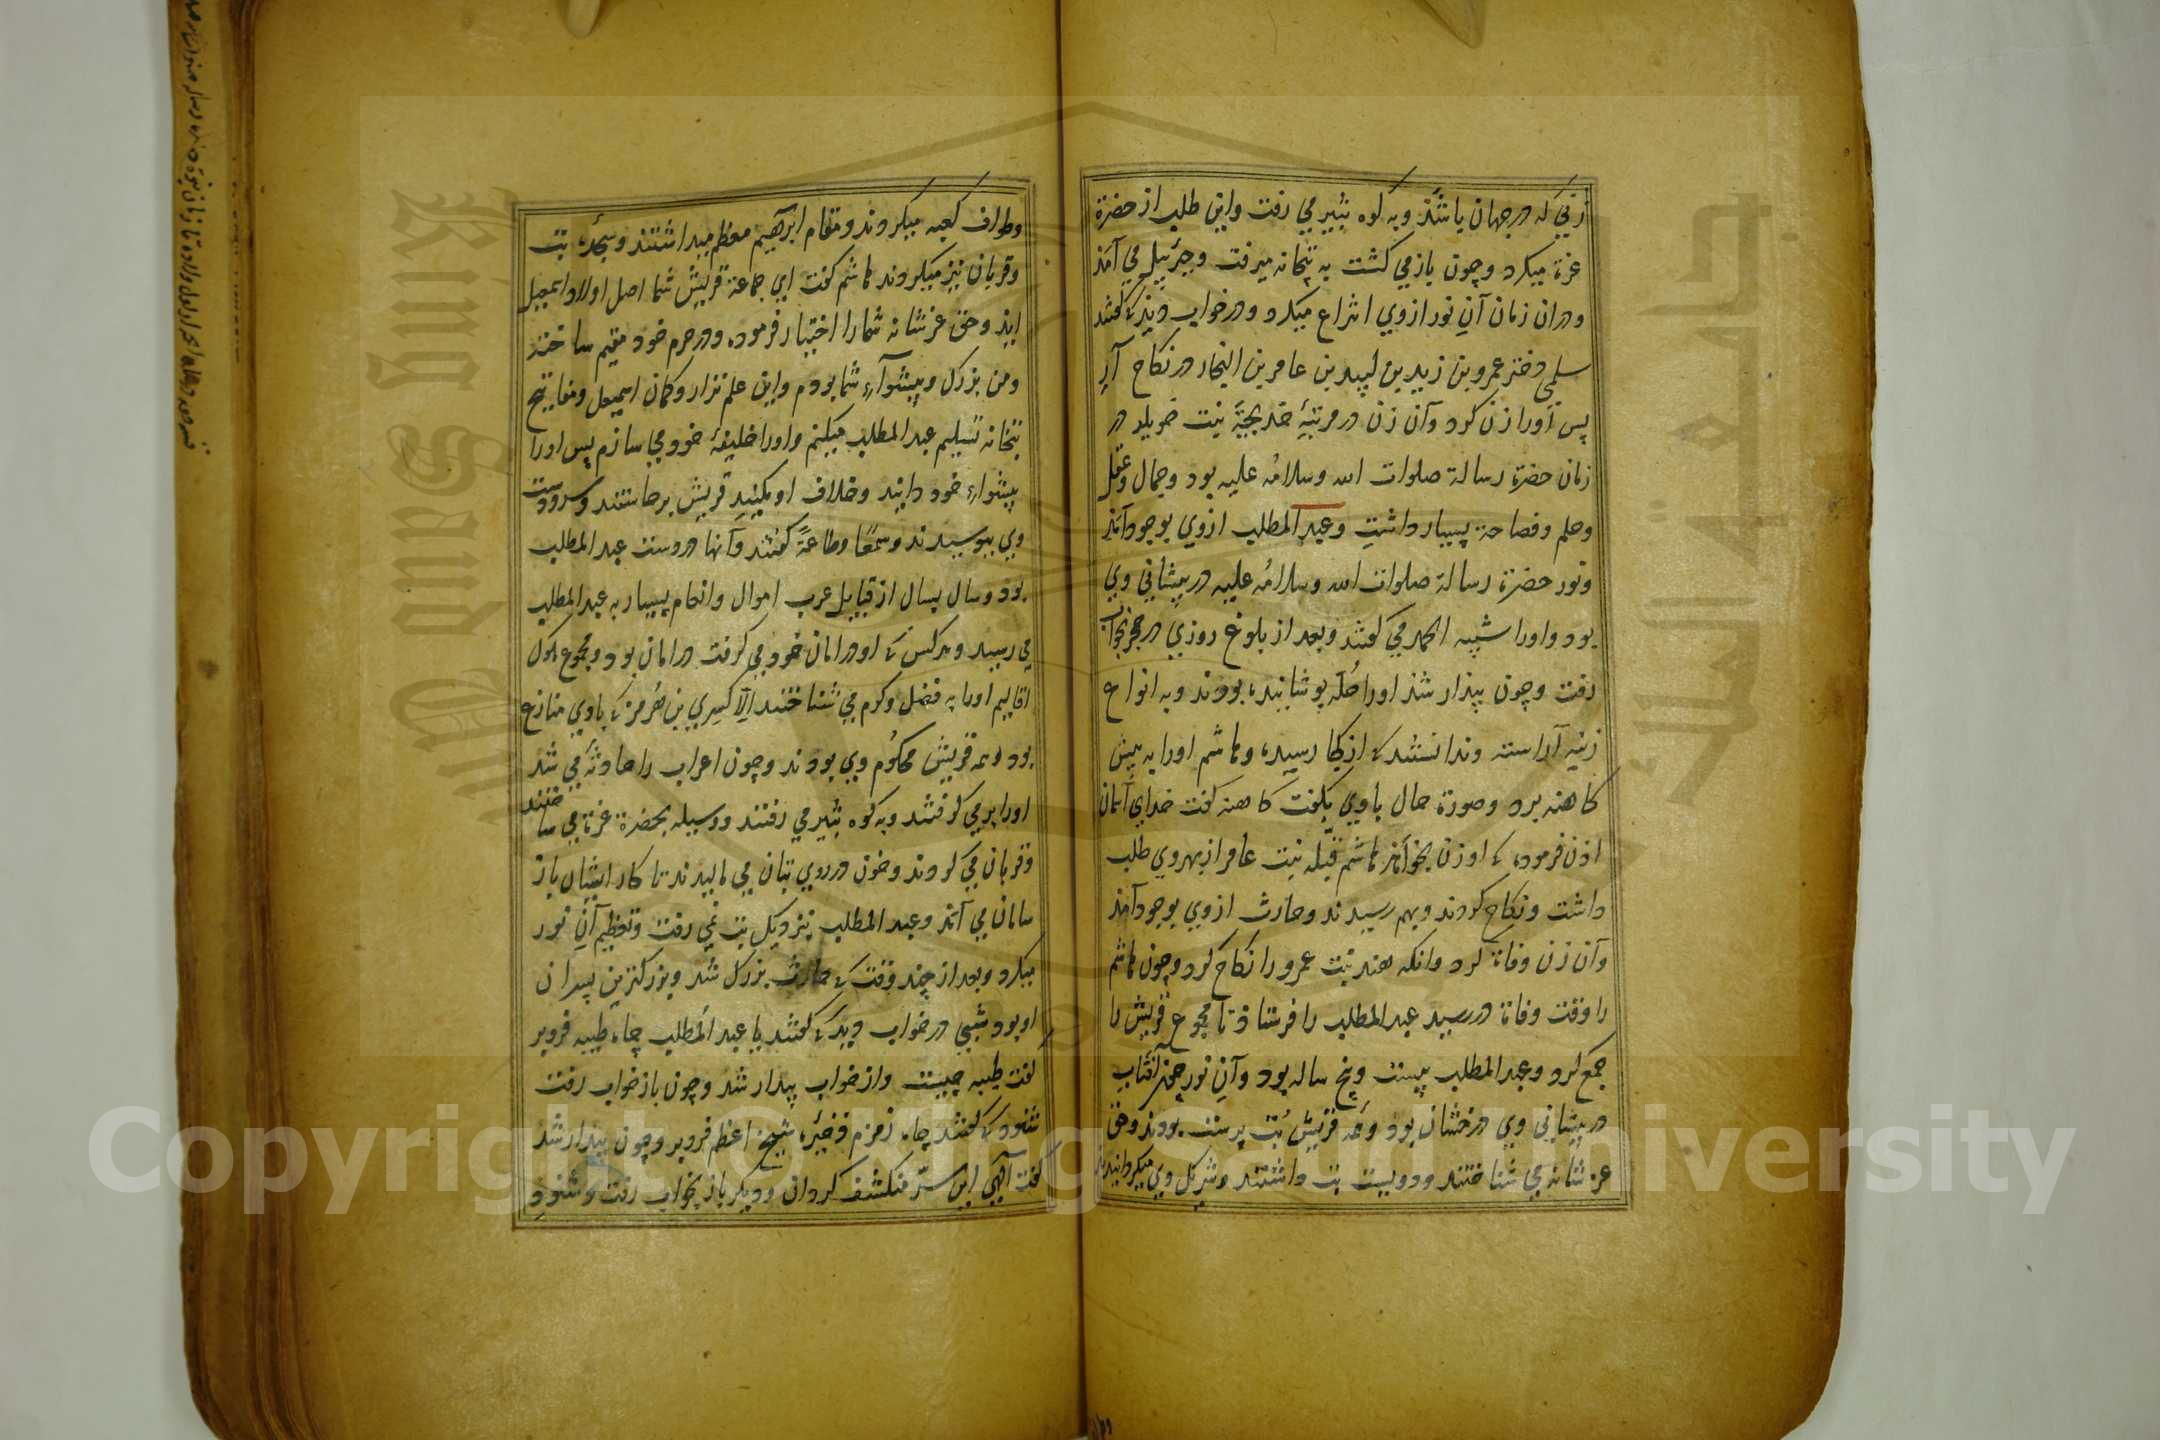 زني که در جهان باشذ و به کوه ثبير مي رفت واين طلب از حضرة
عزة ميکرد و چون باز مي کشت به بتخانه ميرفت و جبرئيل مي آمذ
و دران زمان آن نور ازوي انتزاع ميکرد و در خواب ديذ که کفتند
سلمي دختر عمرو بن زيد بن لبيد بن عامر بن النجار در نکاح آر
پس اورا زن کرد وآن زن در مرتبۀ خديجة بنت خويلد در
زمان حضرة رسالة صلوات الله وسلامه عليه بود وجمال وعقل
وحلم وفصاحة بسيار داشت وعبد المطلب ازوي بوجود آمذ
ونور حضرة رسالة صلوات الله وسلامه عليه در پيشاني وي
بود واورا شيبه الحمد مي کفتند وبعد از بلوغ روزي در حجر بخواب
رفت وچون بيذار شذ اورا حُلّه پوشانيده بودند وبه انواع
زينه آراسته وندانستند که از کجا رسيده وهاشم اورا به پيش
کاهنه برد وصورة حال باوي بکفت کاهنه کفت خداي آسمان
اذن فرموده که او زن بخواهذ هاشم قيله بنت عامر از بهر وي طلب
داشت ونکاح کردند وبهم رسيدند وحارث ازوي بوجود آمذ
وآن زن وفاة کرد وانکه هند بنت عمرو را نکاح کرد وچون هاشم
را وقت وفاة در رسيد عبد المطلب را فرستاذ تا مجموع قريش را
جمع کرد وعبد المطلب بيست وپنج ساله بود وآن نور همچو آفتاب
در پيشاني وي درخشان بود وهمه قريش بُت پرست بودند وحق
عز شانه مي شناختند ودويست بت داشتند وشريک وي ميکردانيدند
وطواف کعبه ميکردند ومقام ابرهيم معظم ميداشتند وسجده بت
وقربان نيز ميکردند هاشم کفت اي جماعة قريش شما اصل اولاد اسمعيل
ايد وحق عز شانه شمارا اختيار فرموده ودر حرم خود مقيم ساختند
ومن بزرك وپيشواء شما بودم واين علم نزار وکمان اسمعيل ومفاتيح
بتخانه تسليم عبد المطلب ميکنم واورا خليفۀ خود مي سازم پس اورا
پيشواء خود دانيد وخلاف او مکنيد قريش برخاستند وسر ودست
وي ببوسيدند وسمعًا وطاعةً کفتند وآنها در دست عبد المطلب
بود وسال بسال از قبايل عرب اموال وانعام بسيار به عبد المطلب
مي رسيد وهر کس که او در امان خود مي کرفت در امان بود ومجموع ملوك
اقاليم اورا به فضل وکرم مي شناختند الا کسري بن هرمز که باوي منازع
بود وهمه قريش محکوم وي بودند وچون اعراب را حادثه مي شد
اورا بر مي کرفتند وبه کوه ثبير مي رفتند ووسيله بحضرة عزة مي ساختند
وقربان مي کردند وخون در روي بتان مي ماليدند تا کار ايشان باز
سامان مي آمذ وعبد المطلب بنزديك بت نمي رفت وتعظيم آن نور
ميکرد وبعد از چند وقت که حارث بزرك شد وبزرکترين پسران
او بود شبي در خواب ديد که کفتند يا عبد المطلب چاه طيبه فروبر
کفت طيبه چيست واز خواب بيدار شد وچون باز خواب رفت
شنود که کفتند چاه زمزم وذخيره شيخ اعظم فروبر وچون بيدار شد
کفت الهي اين سرّ منکشف کردان وديکر باز بخواب رفت وشنود